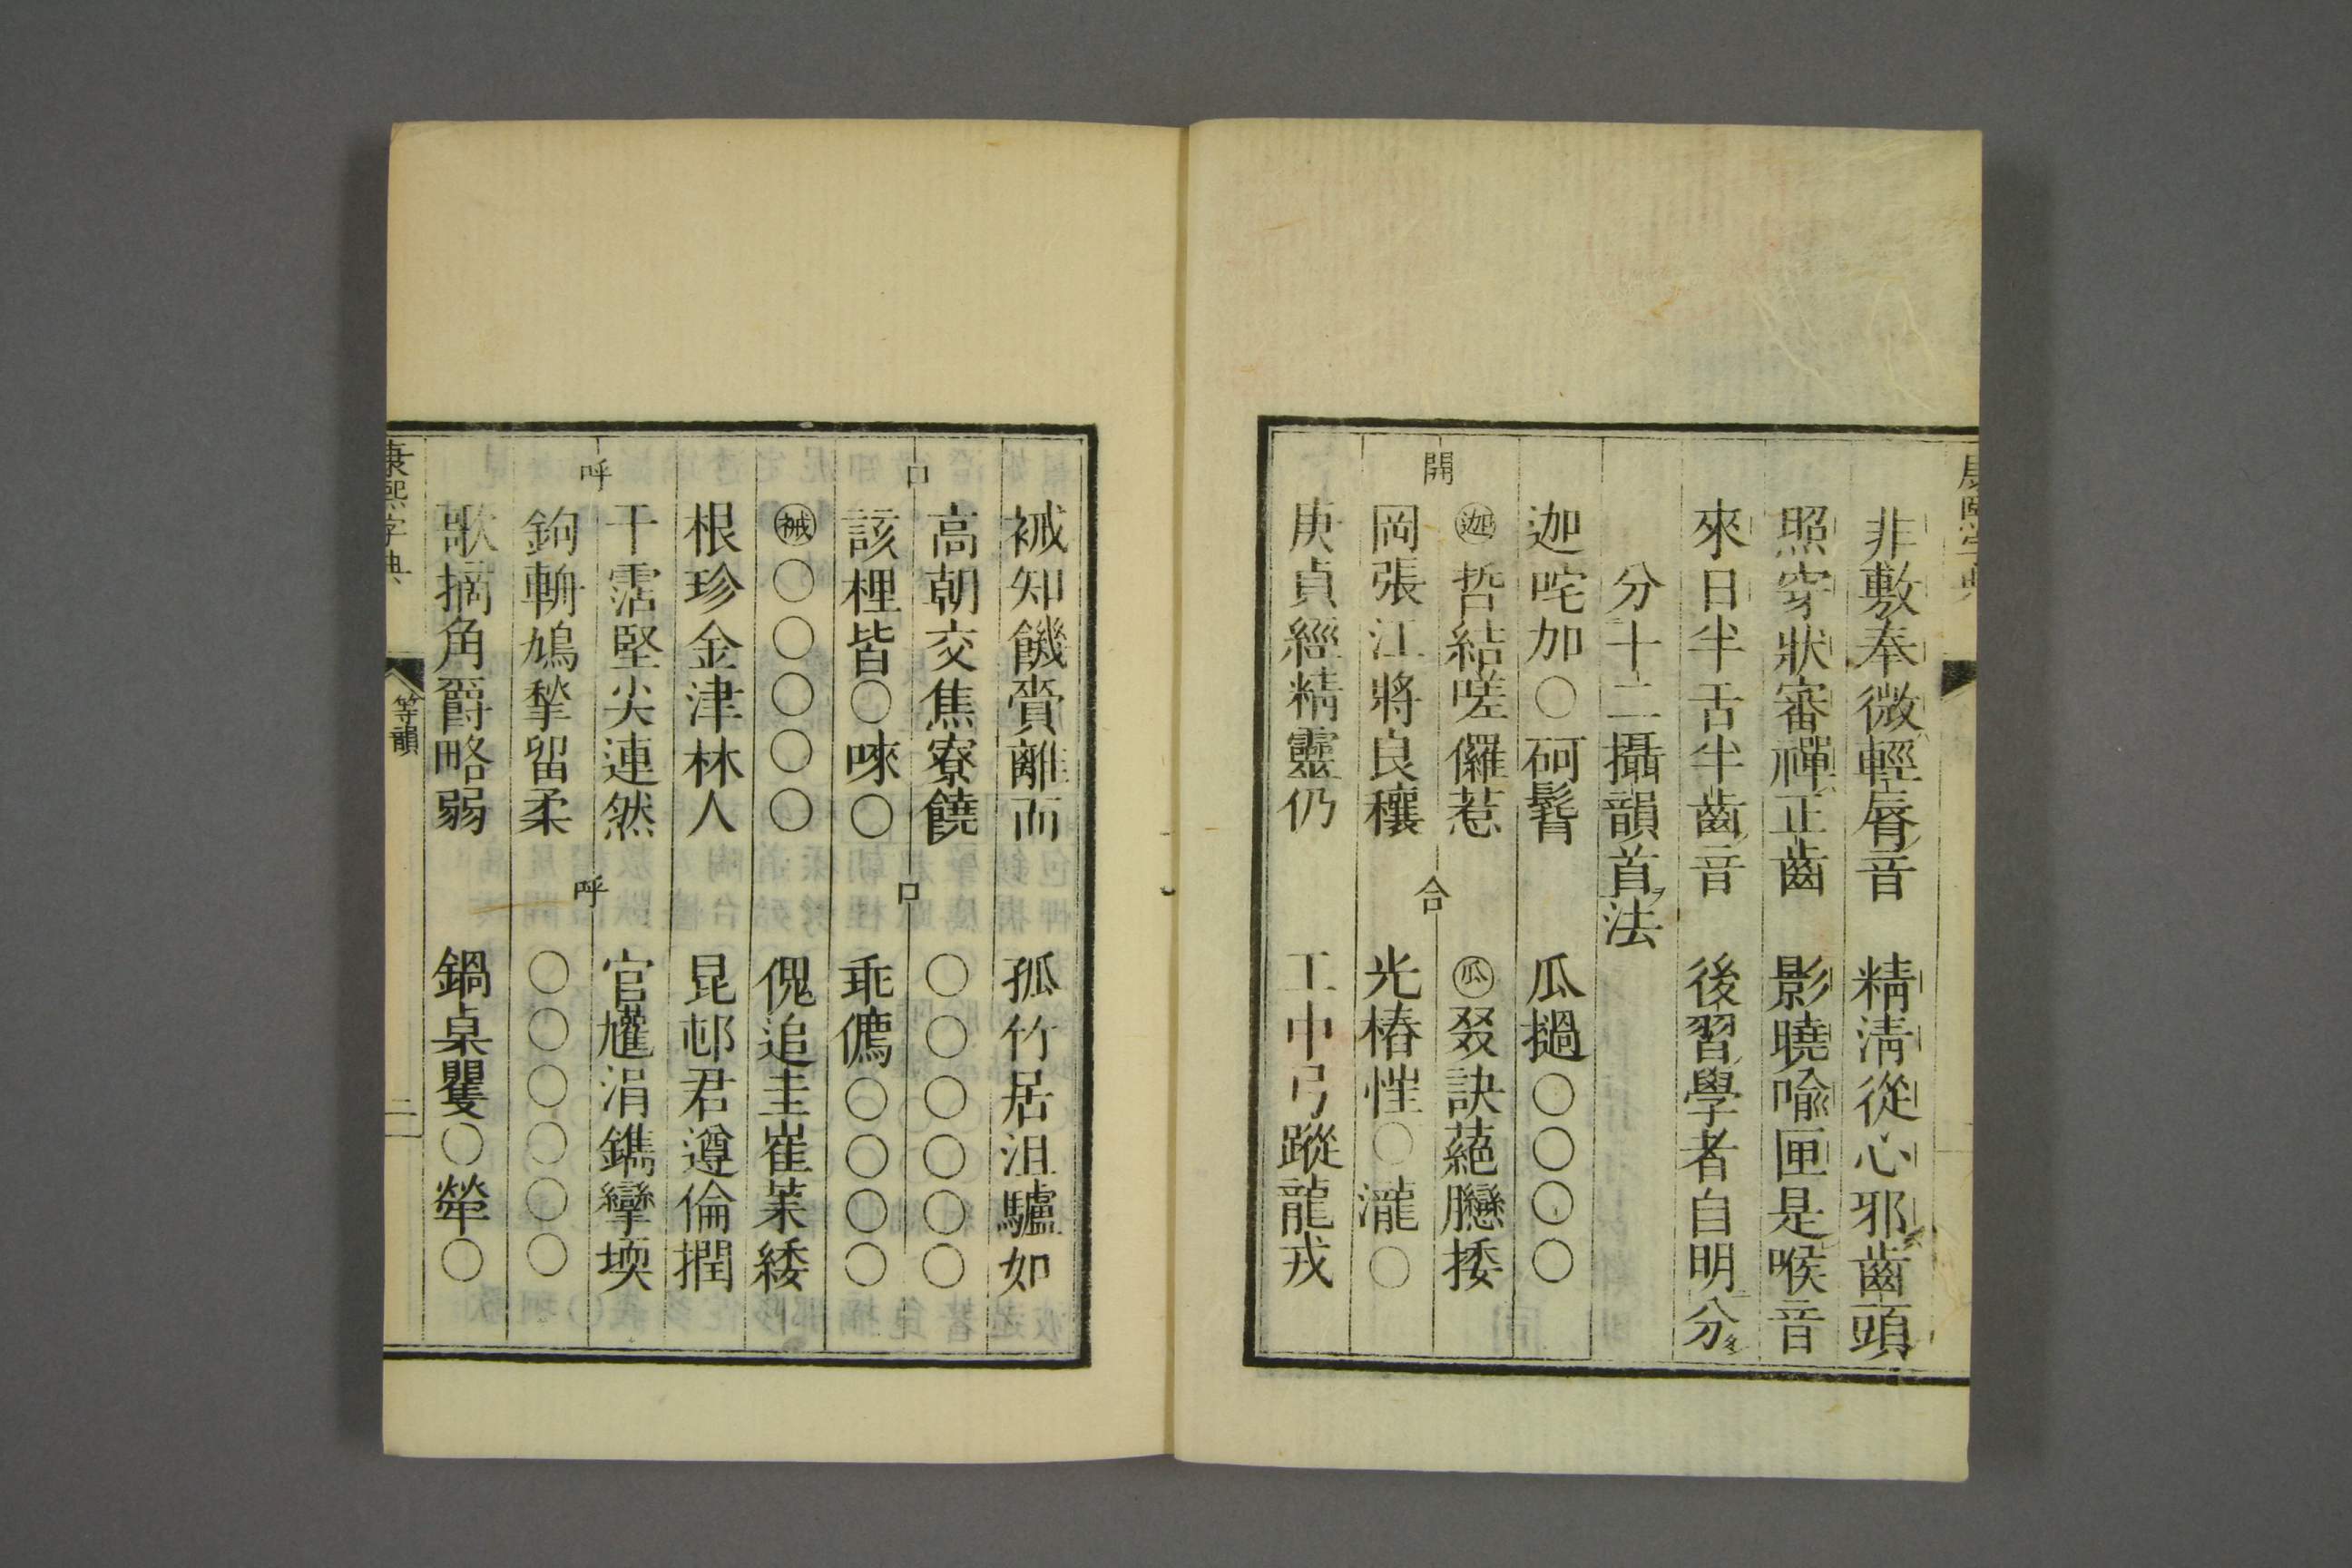 非敷奉微輕脣音　精清從心邪齒頭
照穿狀審禪正齒　影曉喻匣是喉音
來日半舌半齒音　後習學者自明分
分十二攝韻首法
迦咤加〇砢髶　瓜撾〇〇〇〇
開　合
㊀迦 哲結嗟儸惹　瓜 叕訣蕝臡捼
岡張江將良穰　光樁惟〇瀧〇
庚貞經精靈仍　工中弓蹤龍戎
祴知饑賫離而　孤竹居沮驢如
高朝交焦寮饒　〇〇〇〇〇〇
口　口
該𣖕皆〇唻〇　乖㒟〇〇〇〇
祴〇〇〇〇〇　傀追圭崔䒹緌
根珍金津林人　昆邨君遵倫撋
干霑堅尖連然　官尵涓鐫攣堧
呼　呼
鉤輈鳩揫留柔　〇〇〇〇〇〇
歌摘角爵略弱　鍋桌矍〇犖〇
康熙字典
等韻
二